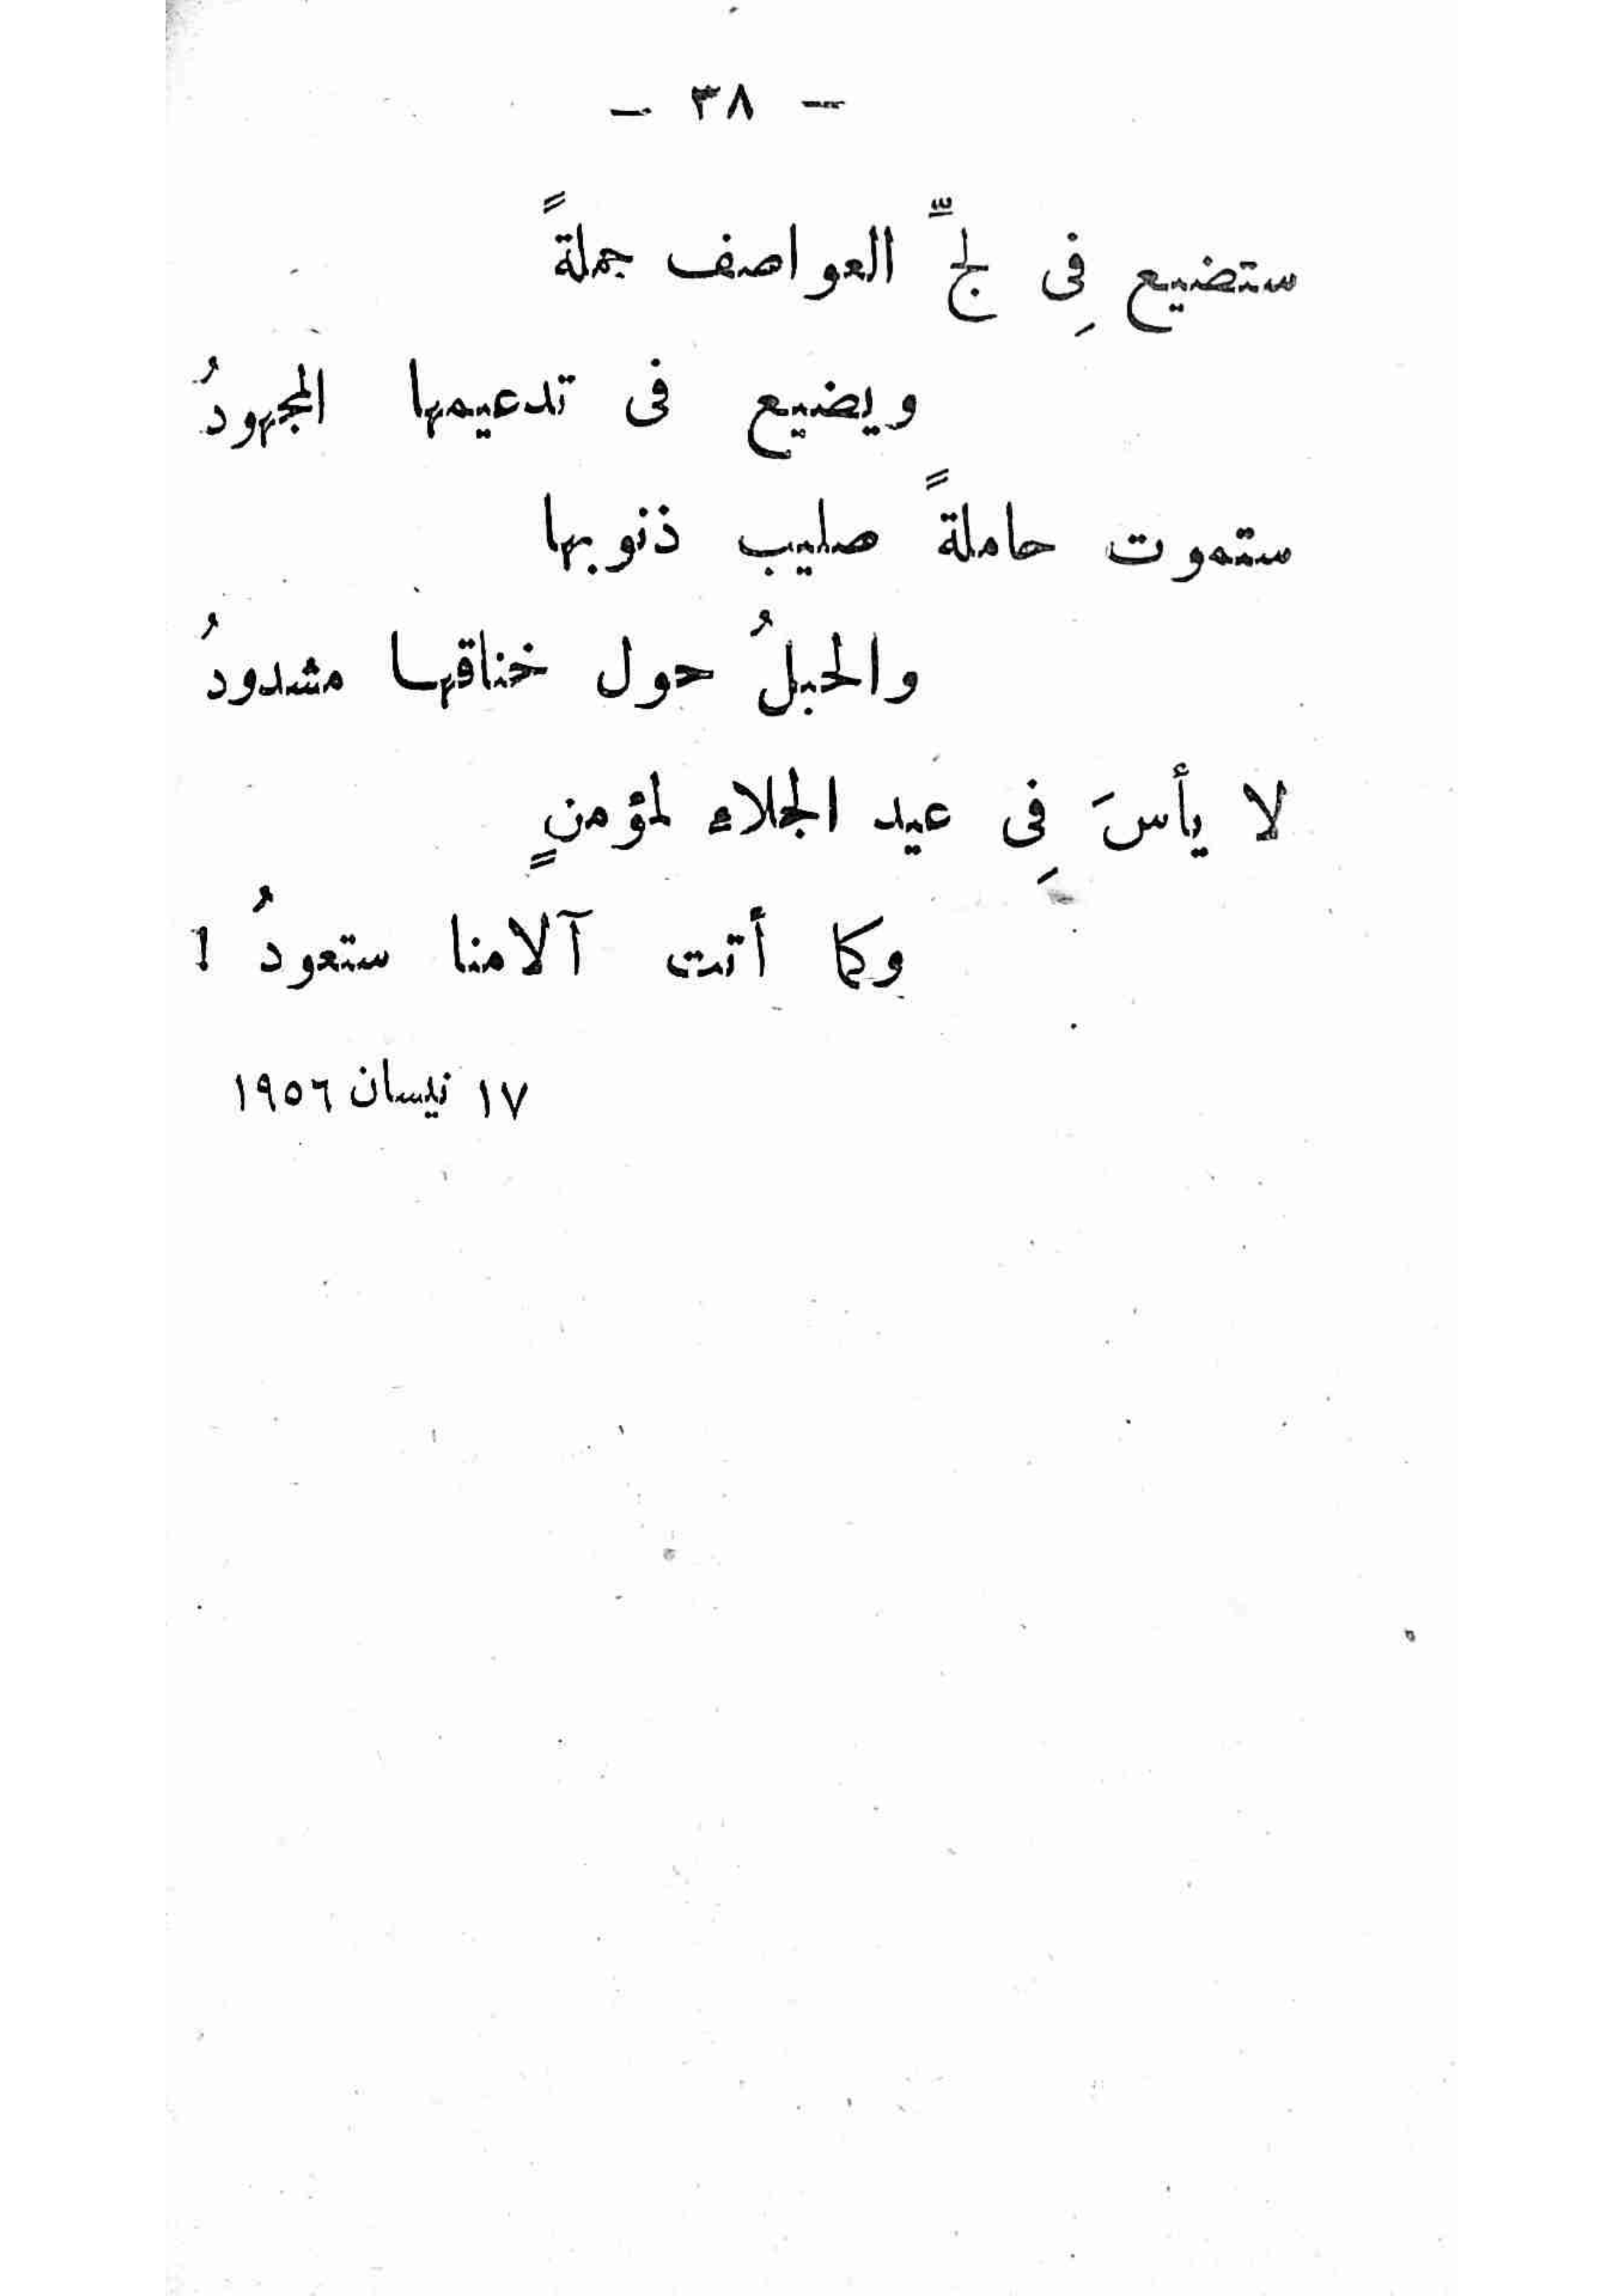 — ٣٨ —
ستضيع فِى لجِّ العواصف جملةً
ويضيع فى تدعيمها المجهودُ
ستموت حاملةً صليب ذنوبها
والحبلُ حول خناقها مشدودُ
لا يأسَ فِى عيد الجلاء لمؤمنٍ
وكما أتت آلامنا ستعودُ !
١٧ نيسان ١٩٥٦